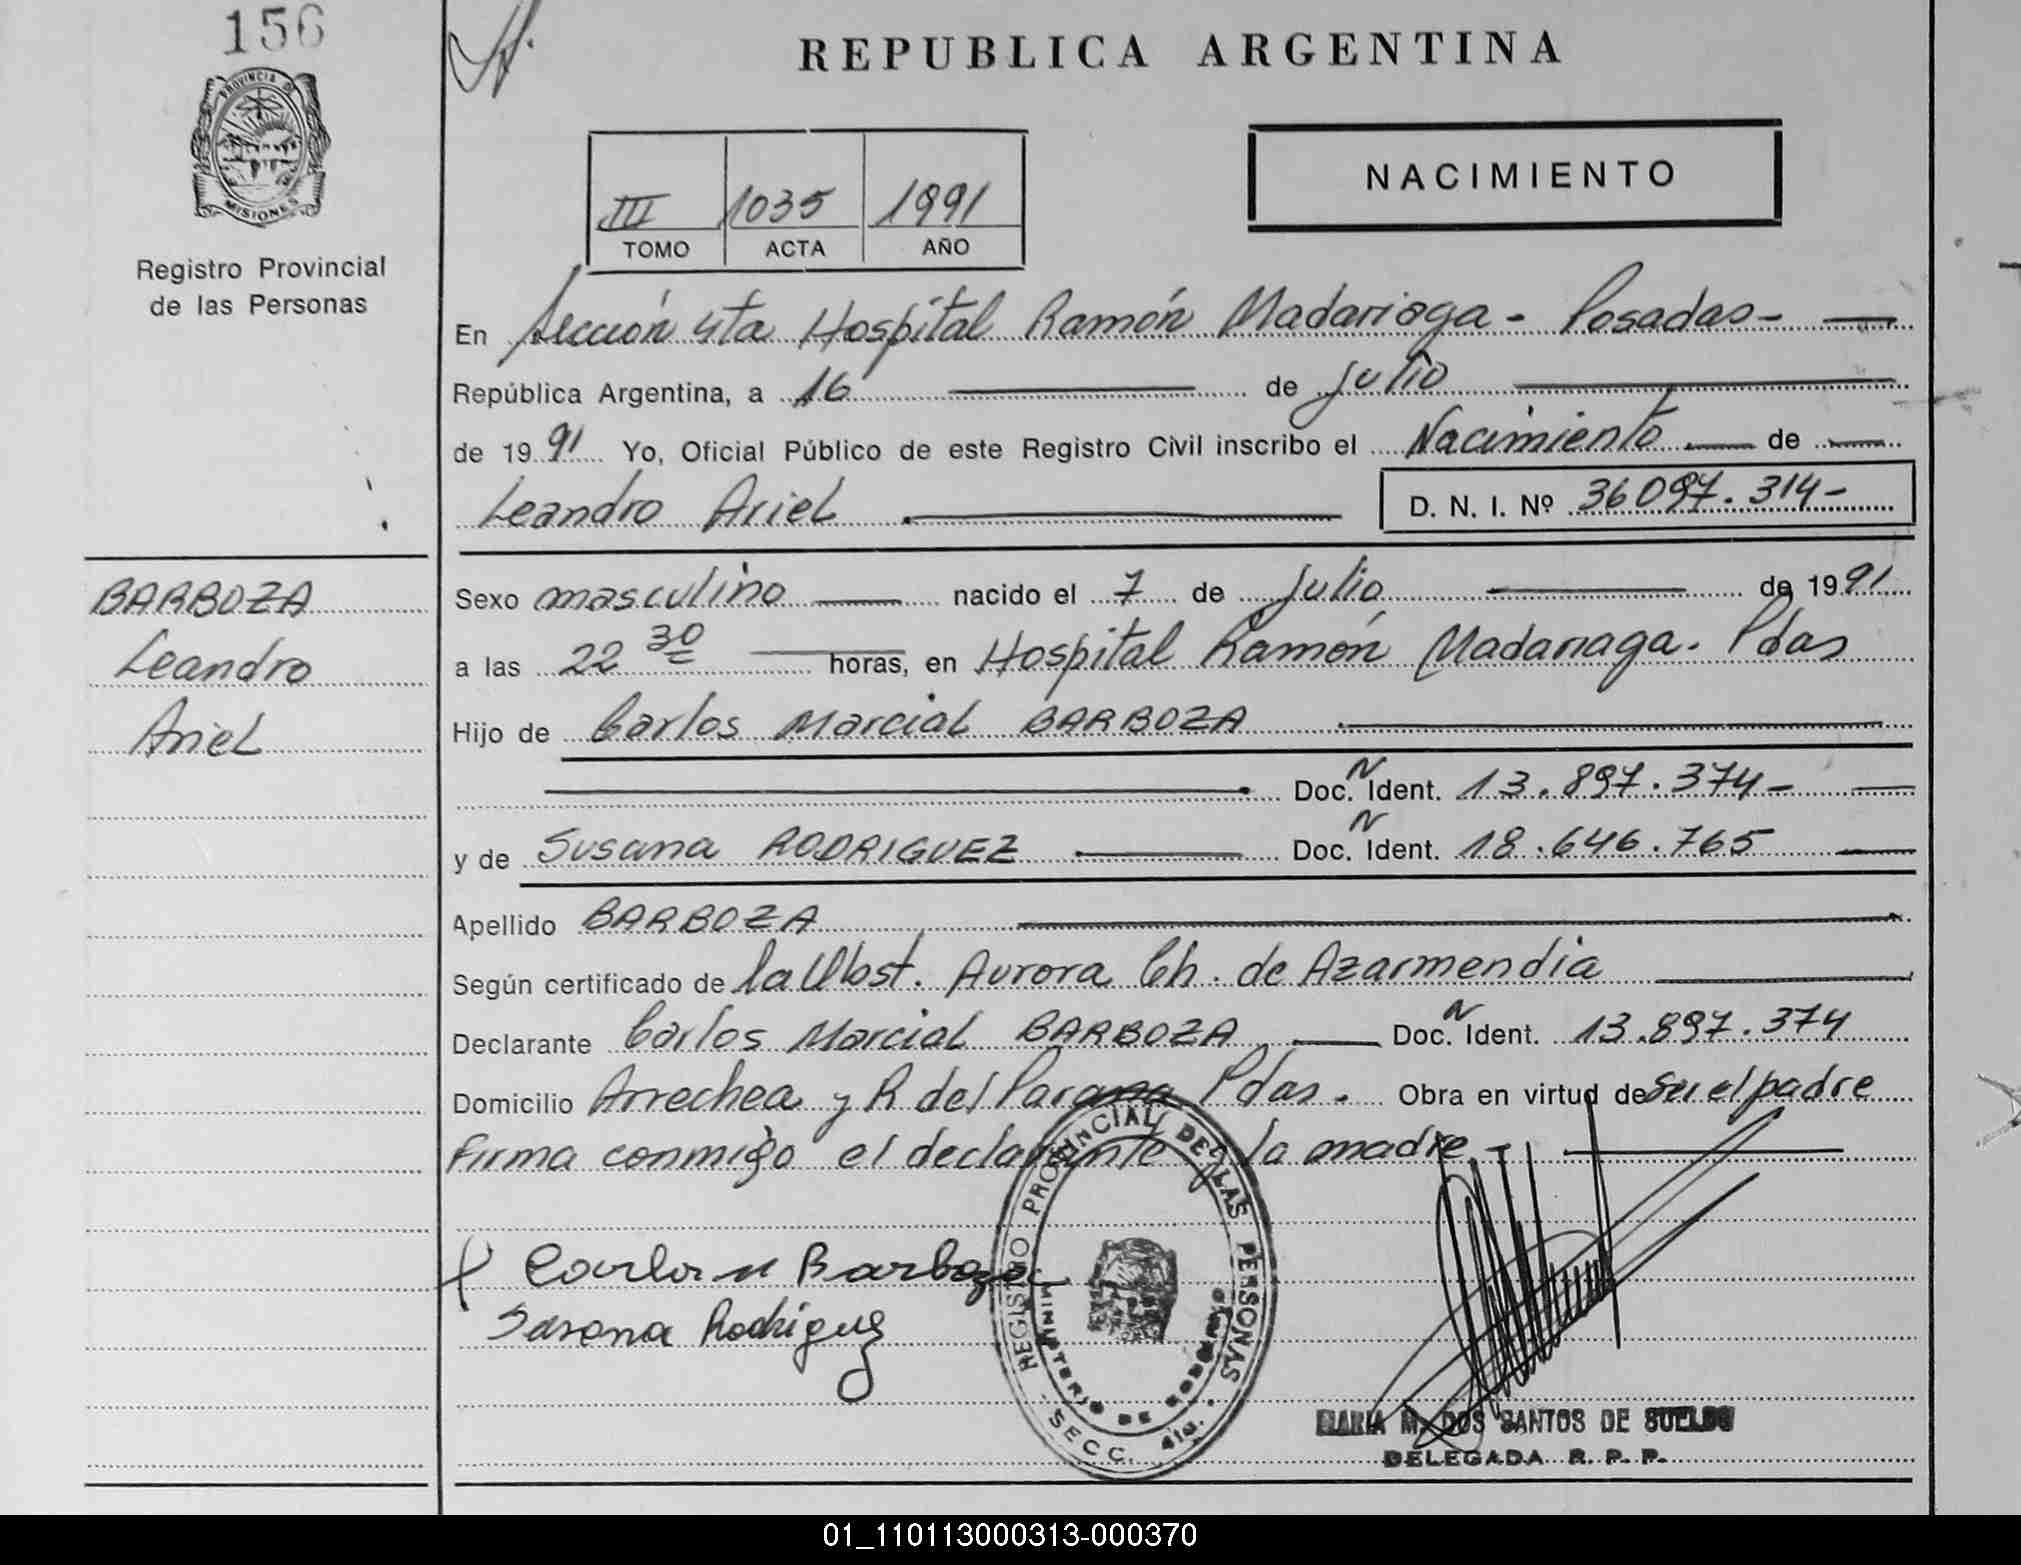 156
PROVINCIA DE
MISIONES
Registro Provincial
de las Personas
BARBOZA
Leandro
Ariel
REPUBLICA ARGENTINA
NACIMIENTO
III 1035 1991
TOMO ACTA AÑO
En Sección 4ta Hospital Ramón Madariaga - Posadas -
República Argentina, a 16 de Julio
de 1991 Yo, Oficial Público de este Registro Civil inscribo el Nacimiento de
Leandro Ariel D. N. I. Nº 36097.314-
Sexo masculino nacido el 7 de Julio de 1991
a las 22 30 horas, en Hospital Ramón Madariaga. Pdas
Hijo de Carlos Marcial BARBOZA
Doc. N Ident. 13.897.374-
y de Susana RODRIGUEZ Doc. N Ident. 18.646.765
Apellido BARBOZA
Según certificado de la Obst. Aurora Ch. de Azarmendia
Declarante Carlos Marcial BARBOZA Doc. N Ident. 13.897.374
Domicilio Arrechea y R del Parana Pdas. Obra en virtud de ser el padre
firma conmigo el declarante y la madre.-
Carlos M Barboza
Susana Rodriguez
REGISTRO PROVINCIAL DE LAS PERSONAS
MINISTERIO DE GOBIERNO
SECC. 4ta.
MARIA M. DOS SANTOS DE SUELDO
DELEGADA R. P. P.
01_110113000313-000370